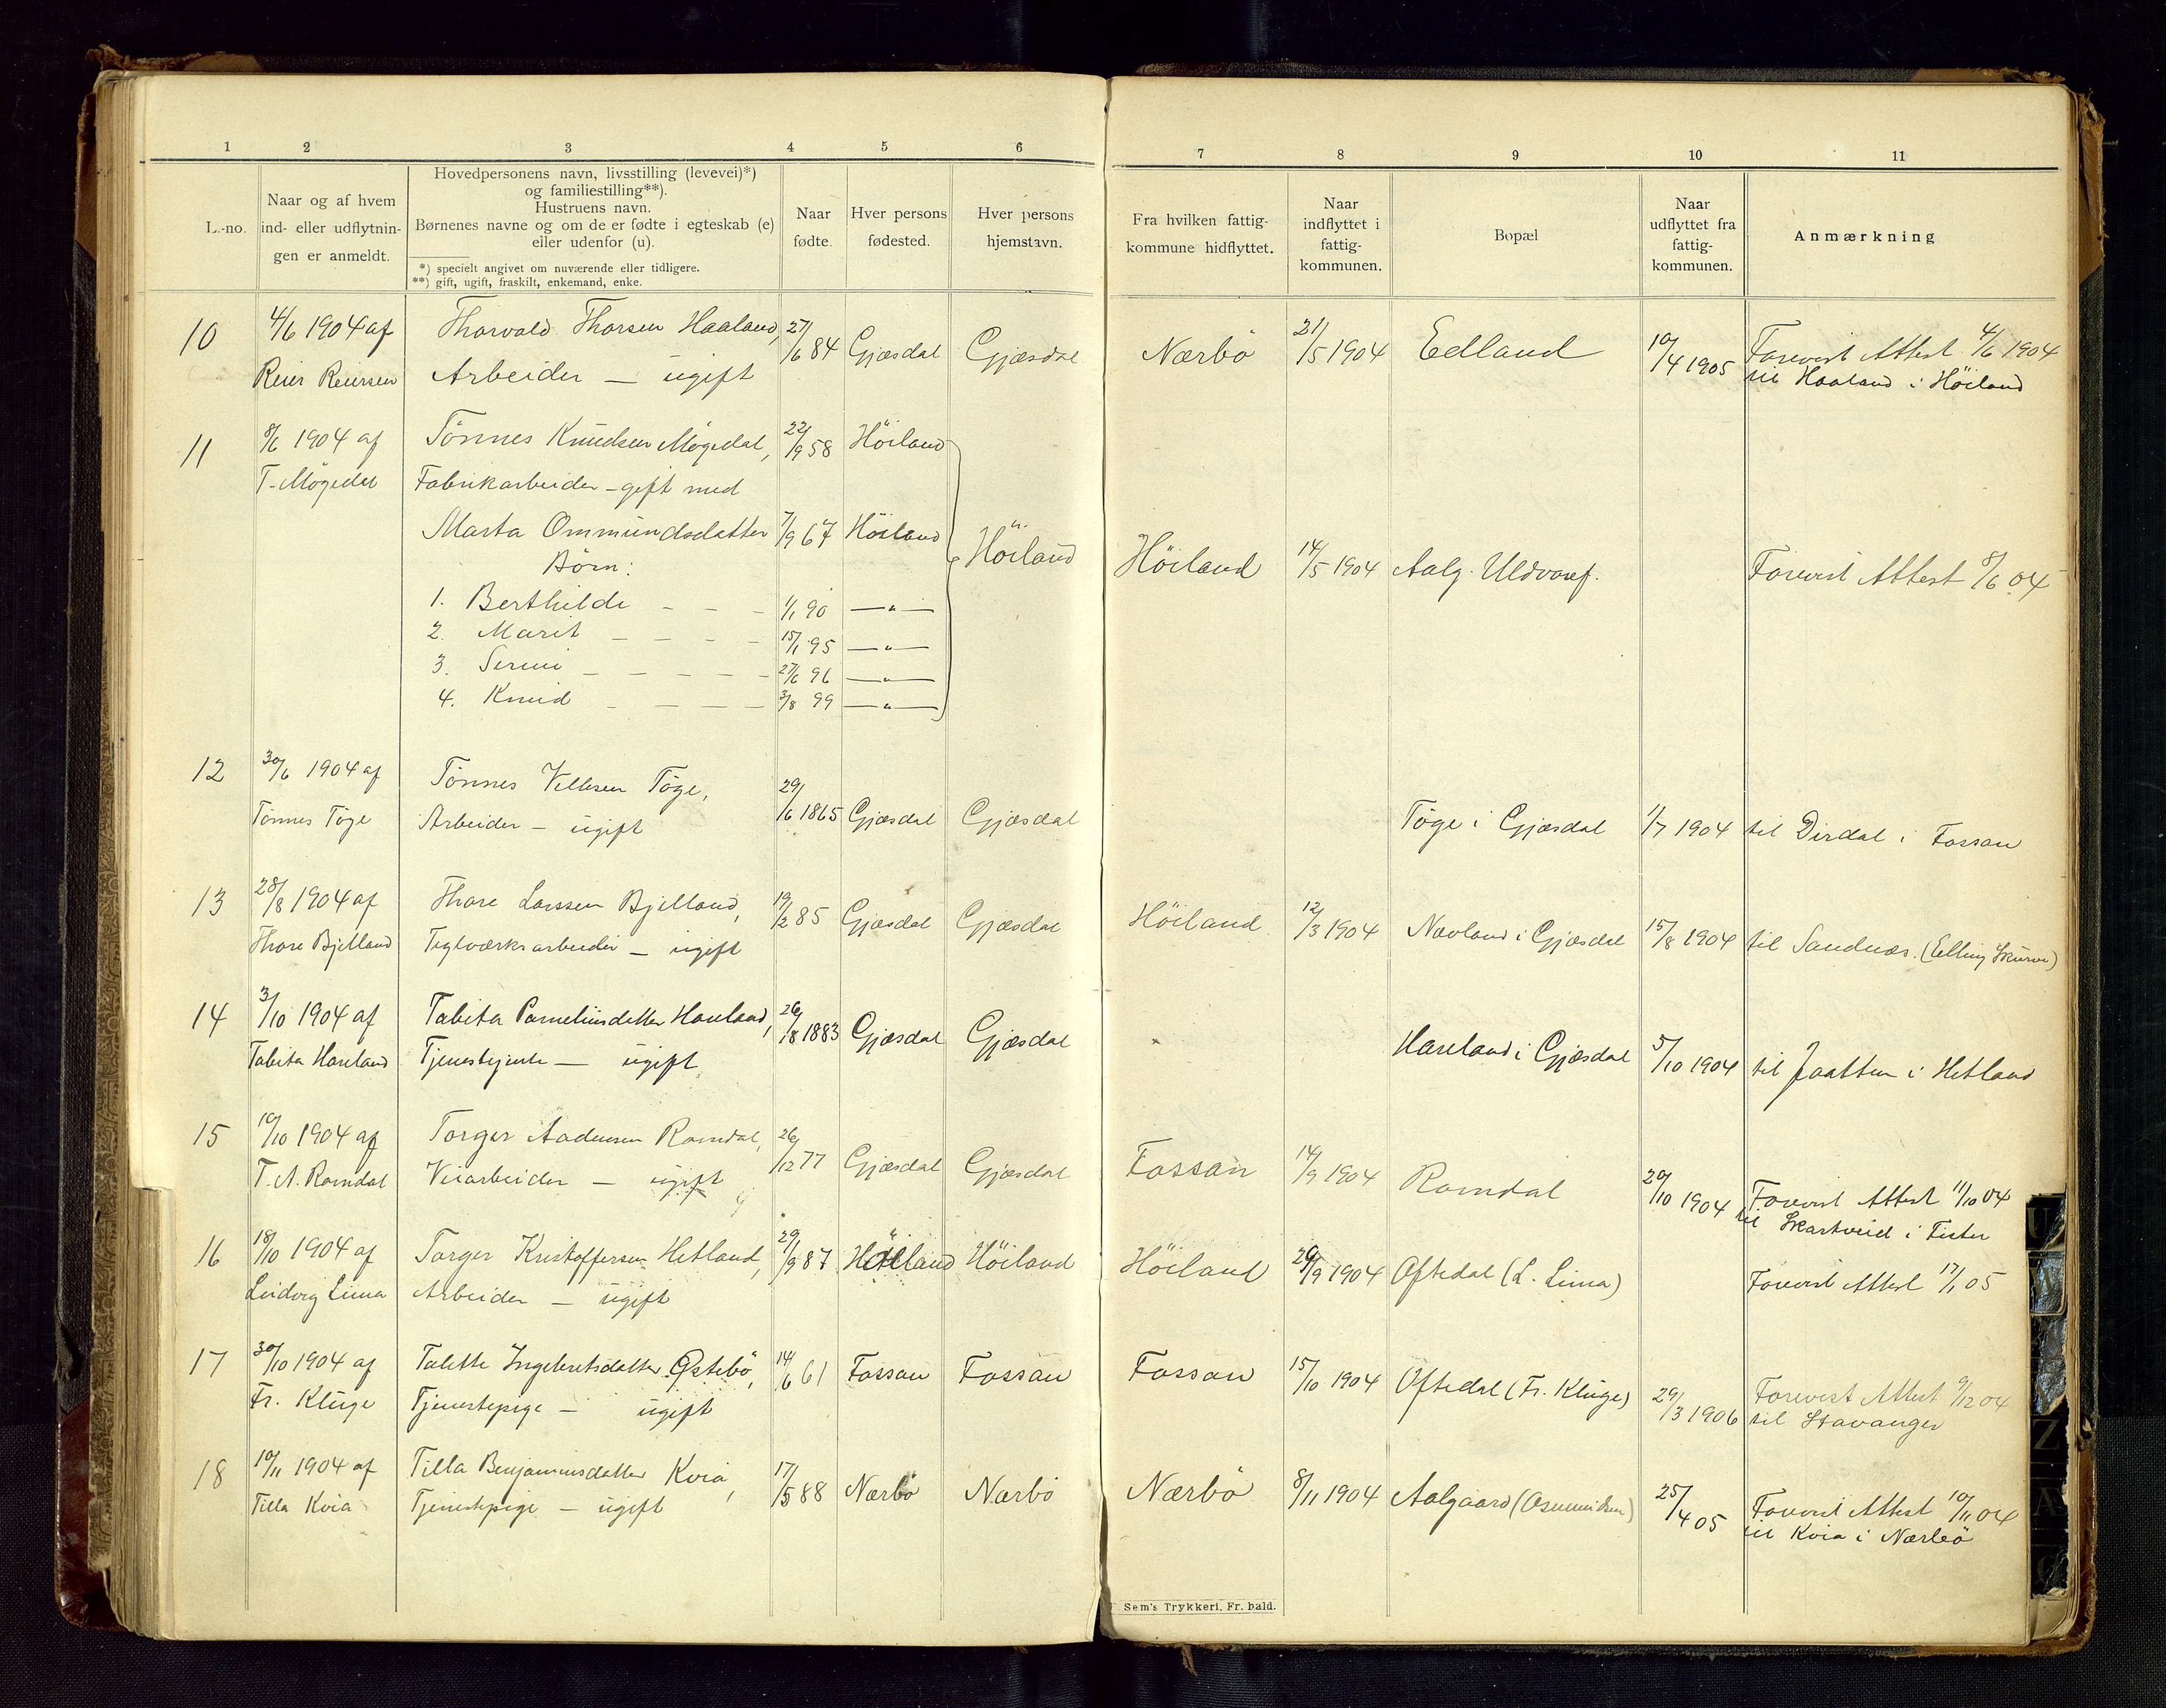 1 2 3 4 5 6 7 8 9 10 11
L.-no.
Naar og af hvem
ind- eller udflytnin-
gen er anmeldt.
Hovedpersonens navn, livsstilling (levevei)*)
og familiestilling**).
Hustruens navn.
Børnenes navne og om de er fødte i egteskab (e)
eller udenfor (u).
*) specielt angivet om nuværende eller tidligere.
**) gift, ugift, fraskilt, enkemand, enke.
Naar
fødte.
Hver persons
fødested.
Hver persons
hjemstavn.
Fra hvilken fattig-
kommune hidflyttet.
Naar
indflyttet i
fattig-
kommunen.
Bopæl
Naar
udflyttet fra
fattig-
kommunen.
Anmærkning
10 4/6 1904 af Thorvald Thorsen Haaland, 27/6 84 Gjæsdal Gjæsdal Nærbö 21/5 1904 Edland 10/4 1905 Forevist Attest 4/6 1904
Reier Reiersen Arbeider — ugift til Haaland i Höiland
11 8/6 1904 af Tönnes Knudsen Mögedal, 22/9 58 Höiland
T. Mögedal Fabrikarbeider – gift med
Marta Ommundsdatter 7/9 67 Höiland Höiland Höiland 14/5 1904 Aalg. Uldvaref. Forevist Attest 8/6 04
Börn:
1. Berthilde - - - 1/1 90 —„—
2. Marit - - - - 15/1 95 —„—
3. Serine - - - - - 27/6 96 —„—
4. Knud - - - - 3/8 99 —„—
12 30/6 1904 af Tönnes Villesen Töge, 29/6 1865 Gjæsdal Gjæsdal Töge i Gjæsdal 1/7 1904 til Dirdal i Fossan
Tönnes Töge Arbeider – ugift
13 28/8 1904 af Thore Larssen Bjelland, 19/2 85 Gjæsdal Gjæsdal Höiland 12/3 1904 Nævland i Gjæsdal 15/8 1904 til Sandnæs. (Elling Skurve)
Thore Bjelland Teglværksarbeider – ugift
14 3/10 1904 af Tabita Parneliusdatter Haveland, 26/8 1883 Gjæsdal Gjæsdal Haveland i Gjæsdal 5/10 1904 til Jaatten i Hetland
Tabita Haveland Tjenestejente — ugift
15 10/10 1904 af Torger Aadnesen Ramdal, 26/12 77 Gjæsdal Gjæsdal Fossan 14/9 1904 Ramdal 20/10 1904 Forevist Attest 11/10 04
T. A. Ramdal Veiarbeider — ugift til Skartveid i Fister
16 18/10 1904 af Torger Kristoffersen Hetland, 29/9 87 Höiland Höiland Höiland 29/9 1904 Oftedal (L. Lima) Forevist Attest 17/1 05
Ludvig Lima Arbeider — ugift
17 30/10 1904 af Talette Ingebretsdatter Østebö, 14/6 61 Fossan Fossan Fossan 15/10 1904 Oftedal (Fr. Kluge) 29/3 1906 Forevist Attest 9/12 04
Fr. Kluge Tjenestepige – ugift til Stavanger
18 10/11 1904 af Tilla Benjaminsdatter Kvia, 17/5 88 Nærbö Nærbö Nærbö 8/11 1904 Aalgaard (Osmundsen) 25/4 05 Forevist Attest 10/11 04
Tilla Kvia Tjenestepige – ugift til Kvia i Nærbö
Sem's Trykkeri, Fr. hald.